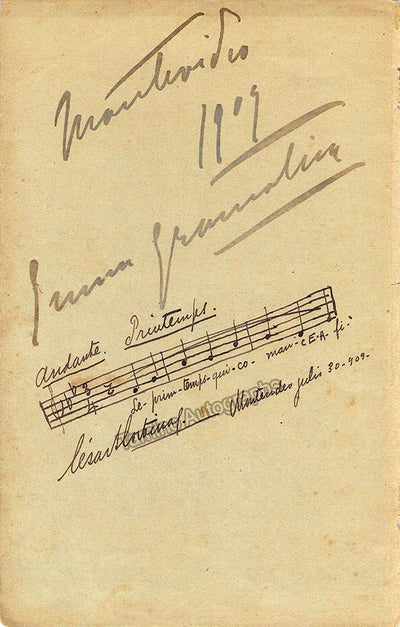 Montevideo
1909
Emma Gramatica
Andante. Printemps.
3 4
Le-prim-temps-qui-co-man-CE-A-fi-
Montevideo julio 30-909-
Autographs